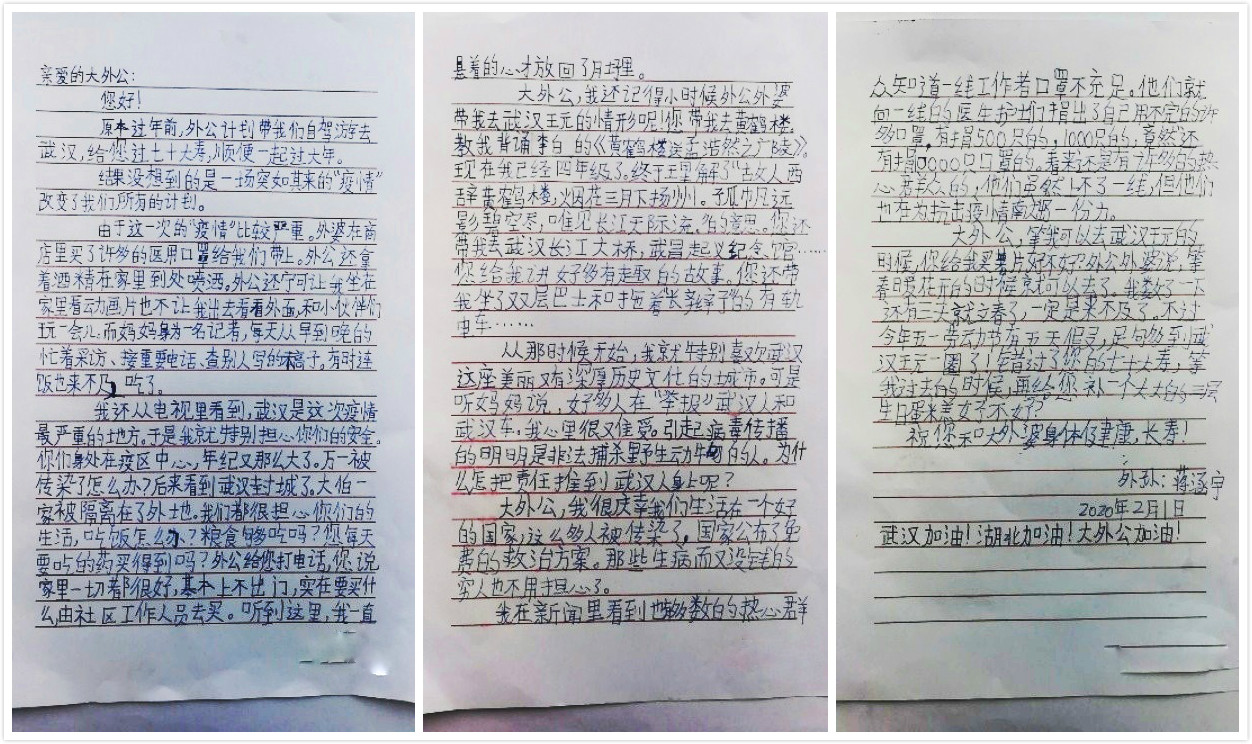 亲爱的大外公:
您好!
原本过年前,外公计划带我们自驾游去
武汉,给您过七十大寿,顺便一起过大年。
结果没想到的是一场突如其来的“疫情”
改变了我们所有的计划。
由于这一次的“疫情”比较严重。外婆在商
店里买了许多的医用口罩给我们带上。外公还拿
着酒精在家里到处喷洒。外公还宁可让我坐在
家里看动画片也不让我出去看看外面,和小伙伴们
玩一会儿。而妈妈身为一名记者,每天从早到晚的
忙着采访、接重要电话、查别人写的稿子。有时连
饭也来不及吃了。
我还从电视里看到,武汉是这次疫情
最严重的地方。于是我就特别担心你们的安全。
你们身处在疫区中心,年纪又那么大了。万一被
传染了怎么办?后来看到武汉封城了。大伯一
家被隔离在了外地。我们都很担心你们的
生活,吃饭怎么办?粮食够吃吗?您每天
要吃的药买得到吗?外公给您打电话,您说
家里一切都很好,基本上不出门,实在要买什
么,由社区工作人员去买。听到这里,我一直
悬着的心才放回了肚里。
大外公,我还记得小时候外公外婆
带我去武汉玩的情形呢!您带我去黄鹤楼,
教我背诵李白的《黄鹤楼送孟浩然之广陵》。
现在我已经四年级了。终于理解了“故人西
辞黄鹤楼,烟花三月下扬州。孤帆远
影碧空尽,唯见长江天际流。”的意思。您还
带我去武汉长江大桥,武昌起义纪念馆……
您给我讲好多有趣的故事。您还带
我坐了双层巴士和拖着“长辫子”的有轨
电车……
从那时候开始,我就特别喜欢武汉
这座美丽又有深厚历史文化的城市。可是
听妈妈说,好多人在“举报”武汉人和
武汉车,我心里很难受。引起病毒传播
的明明是非法捕杀野生动物的人。为什
么怎把责任推到武汉人身上呢?
大外公,我很庆幸我们生活在一个好
的国家,这么多人被传染了,国家公布了免
费的救治方案。那些生病而又没钱的
穷人也不用担心了。
我在新闻里看到也够多数的热心群
众知道一线工作者口罩不充足。他们就
向一线的医生护士们捐出了自己用不完的许
多口罩,有捐500只的,1000只的,竟然还
有捐10000只口罩的。看来还是有许多的热
心群众的,他们虽然上不了一线,但他们
也在为抗击疫情献出一份力。
大外公,等我可以去武汉玩的
时候,你给我买薯片好不好?外公外婆说,等
春暖花开的时候就可以去了。我数了一下
还有三天就立春了,一定是来不及了。不过
今年五一劳动节有五天假号,足够到武
汉玩一圈了!错过了您的七十大寿,等
我过去的时候,再给您补一个大大的三层
生日蛋糕好不好?
祝您和大外婆身体健康,长寿!
外孙:蒋涵宇
2020年2月1日
武汉加油!湖北加油!大外公加油!